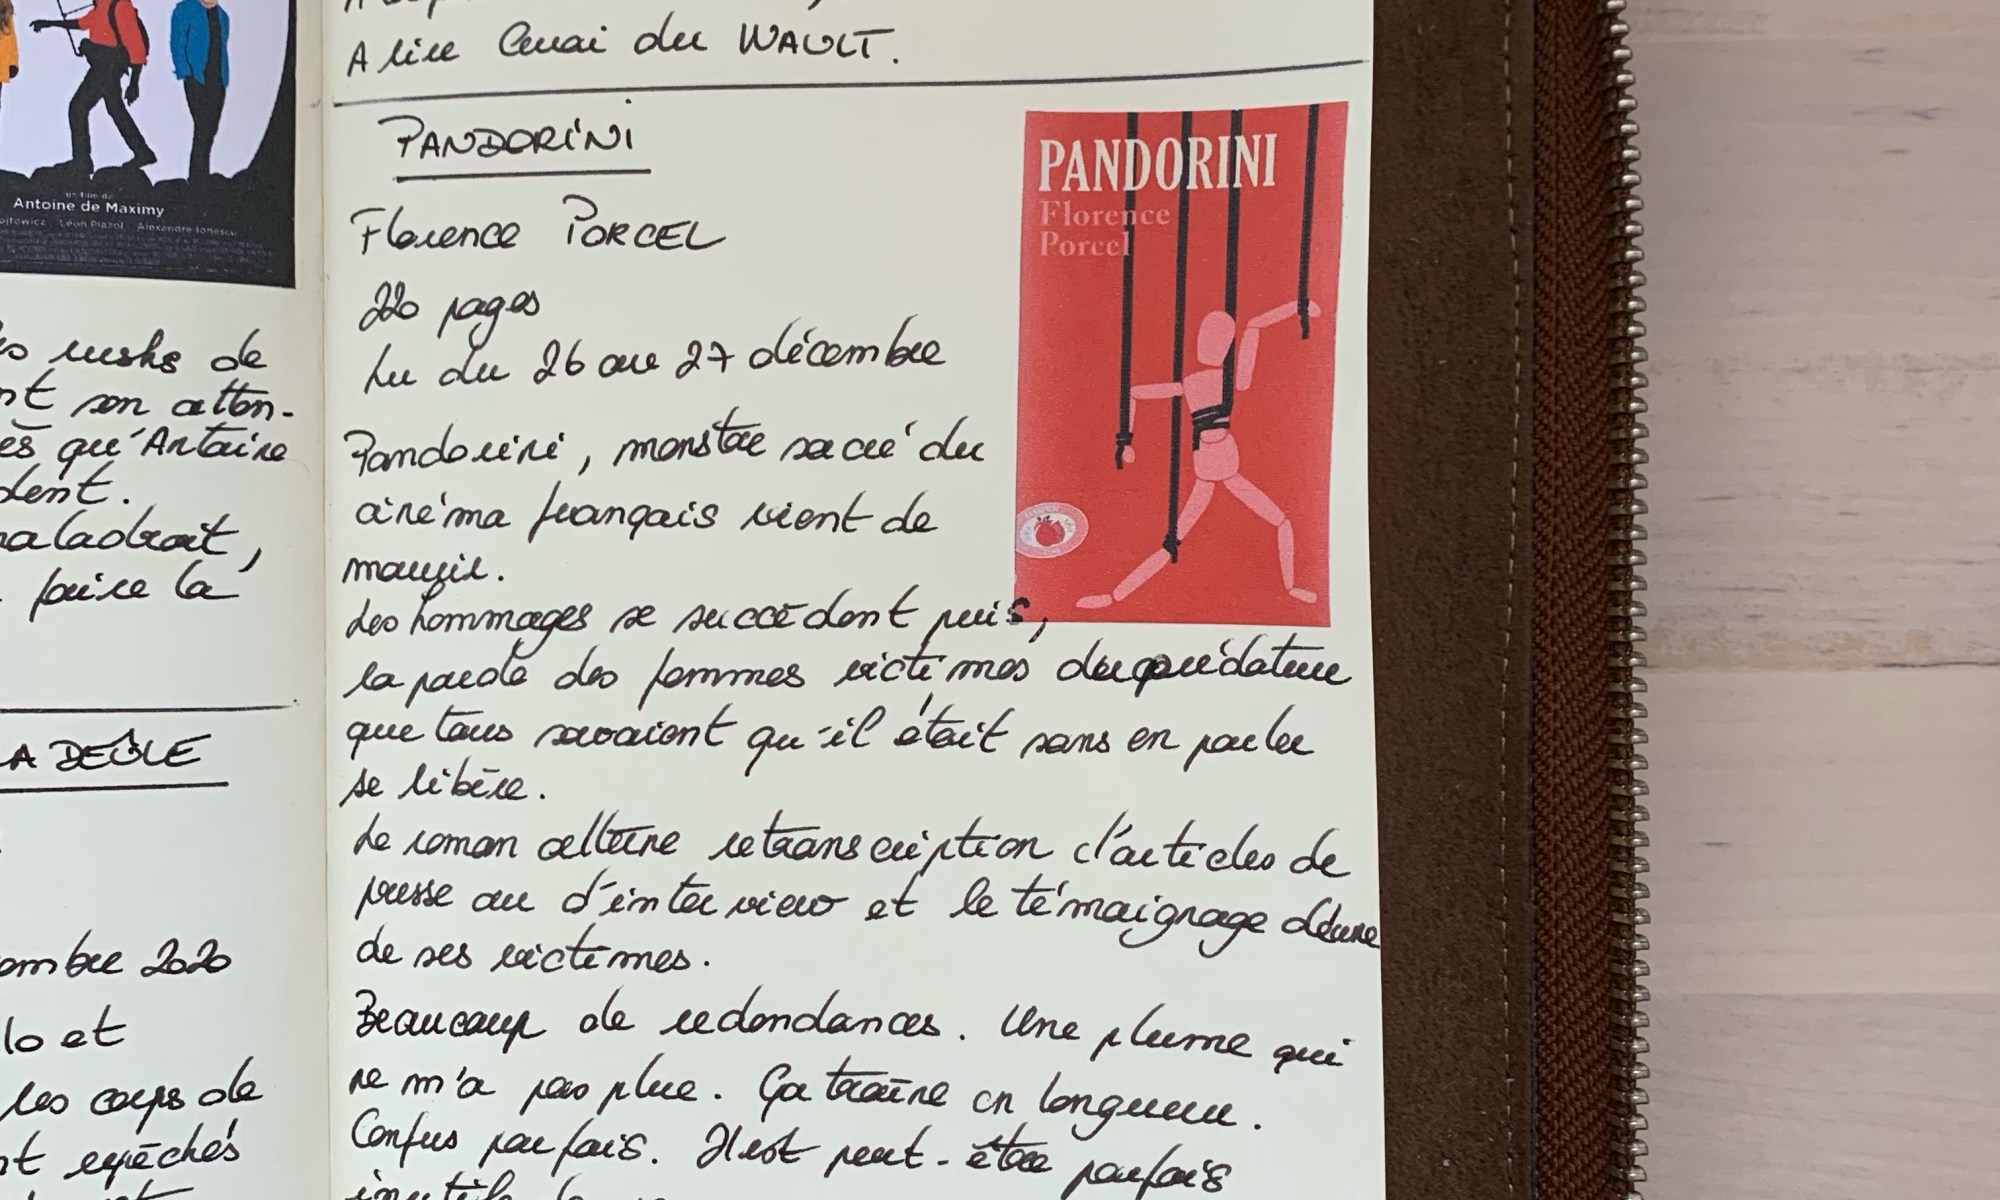 un film de
Antoine de Maximy
Léon Plazol Alexandre Ionescu
rushs de
son atten-
qu'Antoine
maladroit,
faire la
LA DEÛLE
2020
et
les corps de
repêchés
A lire Quai du WAULT.
PANDORINI
Florence PORCEL
220 pages
Lu du 26 au 27 décembre
Pandorini, monstre sacré du
cinéma français vient de
mourir.
Les hommages se succèdent puis,
la parole des femmes victimes du prédateur
que tous savaient qu'il était sans en parler
se libère.
Le roman alterne retranscription d'articles de
presse ou d'interview et le témoignage d'une
de ses victimes.
Beaucoup de redondances. Une plume qui
ne m'a pas plue. Ça traîne en longueur.
Confus parfois. Il est peut-être parfois
PANDORINI
Florence
Porcel